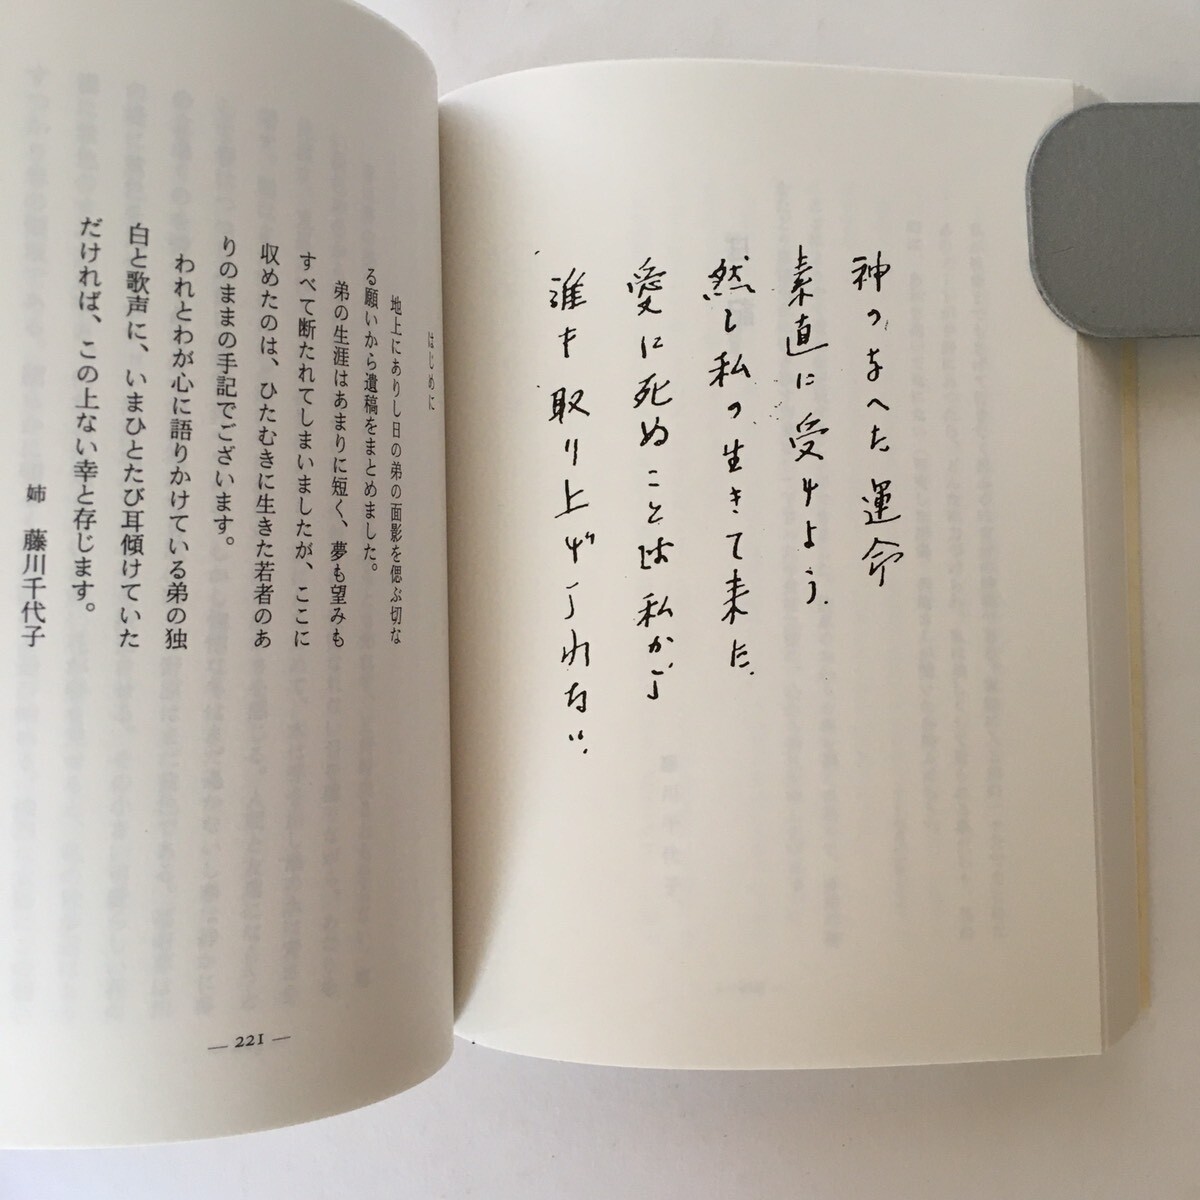 神の与へた運命
素直に受けよう.
然し私の生きて来た.
愛に死ぬことは私から
誰も取り上げられない.
はじめに
地上にありし日の弟の面影を偲ぶ切な
る願いから遺稿をまとめました。
弟の生涯はあまりに短く、夢も望みも
すべて断たれてしまいましたが、ここに
収めたのは、ひたむきに生きた若者のあ
りのままの手記でございます。
われとわが心に語りかけている弟の独
白と歌声に、いまひとたび耳傾けていた
だければ、この上ない幸と存じます。
姉 藤川千代子
— 221 —